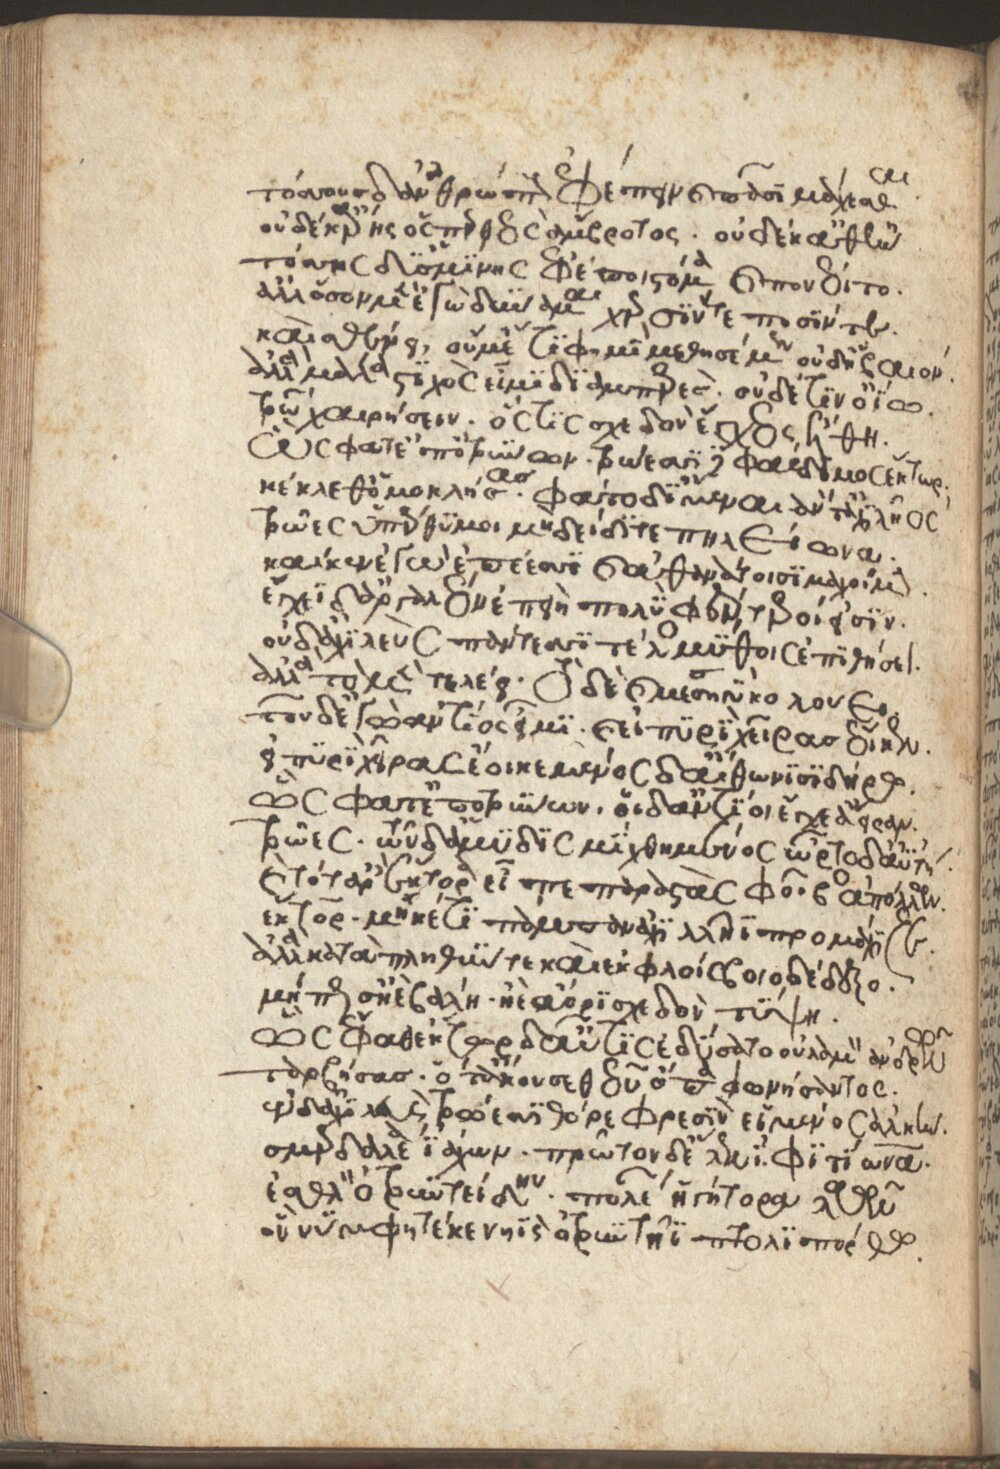 τόσσουσδ ἀνθρώπους ἐφέπειν καὶ πᾶσι μάχεσθαι
οὐδέ κ' ἄρης ὅς περ θεὸς ἄμβροτος. οὐδέ κ' ἀθήνη
τόσσης δ' ὑσμίνης ἐφέποι στόμα καὶ πονέοιτο.
ἀλλ' ὅσον μὲν ἐγὼ δύναμαι χερσίν τε ποσίν τε.
καὶ σθένει, οὔ μ' ἔτι φημὶ μεθησέμεν οὐδ' ἠβαιόν.
ἀλλὰ μάλα στιχὸς εἶμι διαμπερές. οὐδέ τιν' οἴω.
τρώων χαιρήσειν. ὅς τις σχεδὸν ἔγχεος ἔλθη.
ὣς φάτ' ἐποτρύνων. τρώεσσι δὲ φαίδιμος ἕκτωρ.
κέκλεθ' ὁμοκλήσας. φάτο δ' ἴμεναι ἄντ' ἀχιλῆος
τρῶες ὑπέρθυμοι μὴ δείδιτε πηλείωνα.
καί κεν ἐγὼ ἐπέεσσι καὶ ἀθανάτοισι μαχοίμην.
ἔγχεϊ δ' ἀργαλέον ἐπειὴ πολὺ φέρτεροί εἰσιν.
οὐδ' ἀχιλεὺς πάντεσσι τέλος μύθοις ἐπιθήσει.
ἀλλὰ τὸ μὲν τελέει. τὸ δὲ καὶ μεσσηγὺ κολούει.
τοῦ δ' ἐγὼ ἀντίος εἶμι. καὶ εἰ πυρὶ χεῖρας ἔοικεν.
εἰ πυρὶ χεῖρας ἔοικε μένος δ' αἴθωνι σιδήρω.
ὣς φάτ' ἐποτρύνων. οἳ δ' ἀντίοι ἔγχε' ἄειραν.
τρῶες. τῶν δ' ἄμυδις μίχθη μένος ὦρτο δ' ἀϋτή.
καὶ τότ' ἄρ' ἕκτορα εἶπε παραστὰς φοῖβος ἀπόλλων.
ἕκτορ. μηκέτι πάμπαν ἀχιλλῆϊ προμάχιζε.
ἀλλὰ κατὰ πληθύν τε καὶ ἐκ φλοίσβοιο δέδεξο.
μή πως σ' ἠὲ βάλη. ἠὲ ἄορι σχεδὸν τύψη.
ὣς ἔφαθ' ἕκτωρ δ' αὖτις ἐδύσατο οὐλαμὸν ἀνδρῶν
ταρβήσας. ὅτ' ἄκουσε θεοῦ ὄπα φωνήσαντος.
ἐν δ' ἀχιλεὺς τρώεσσι θόρε φρεσὶν εἱμένος ἀλκήν.
σμερδαλέα ἰάχων. πρῶτον δ' ἕλεν ἰφιτίωνα.
ἐσθλὸν ὀτρυντείδην. πολέων ἡγήτορα λαῶν
ὃν νύμφη τέκε νηῒς ὀτρυντῆϊ πτολιπόρθω.